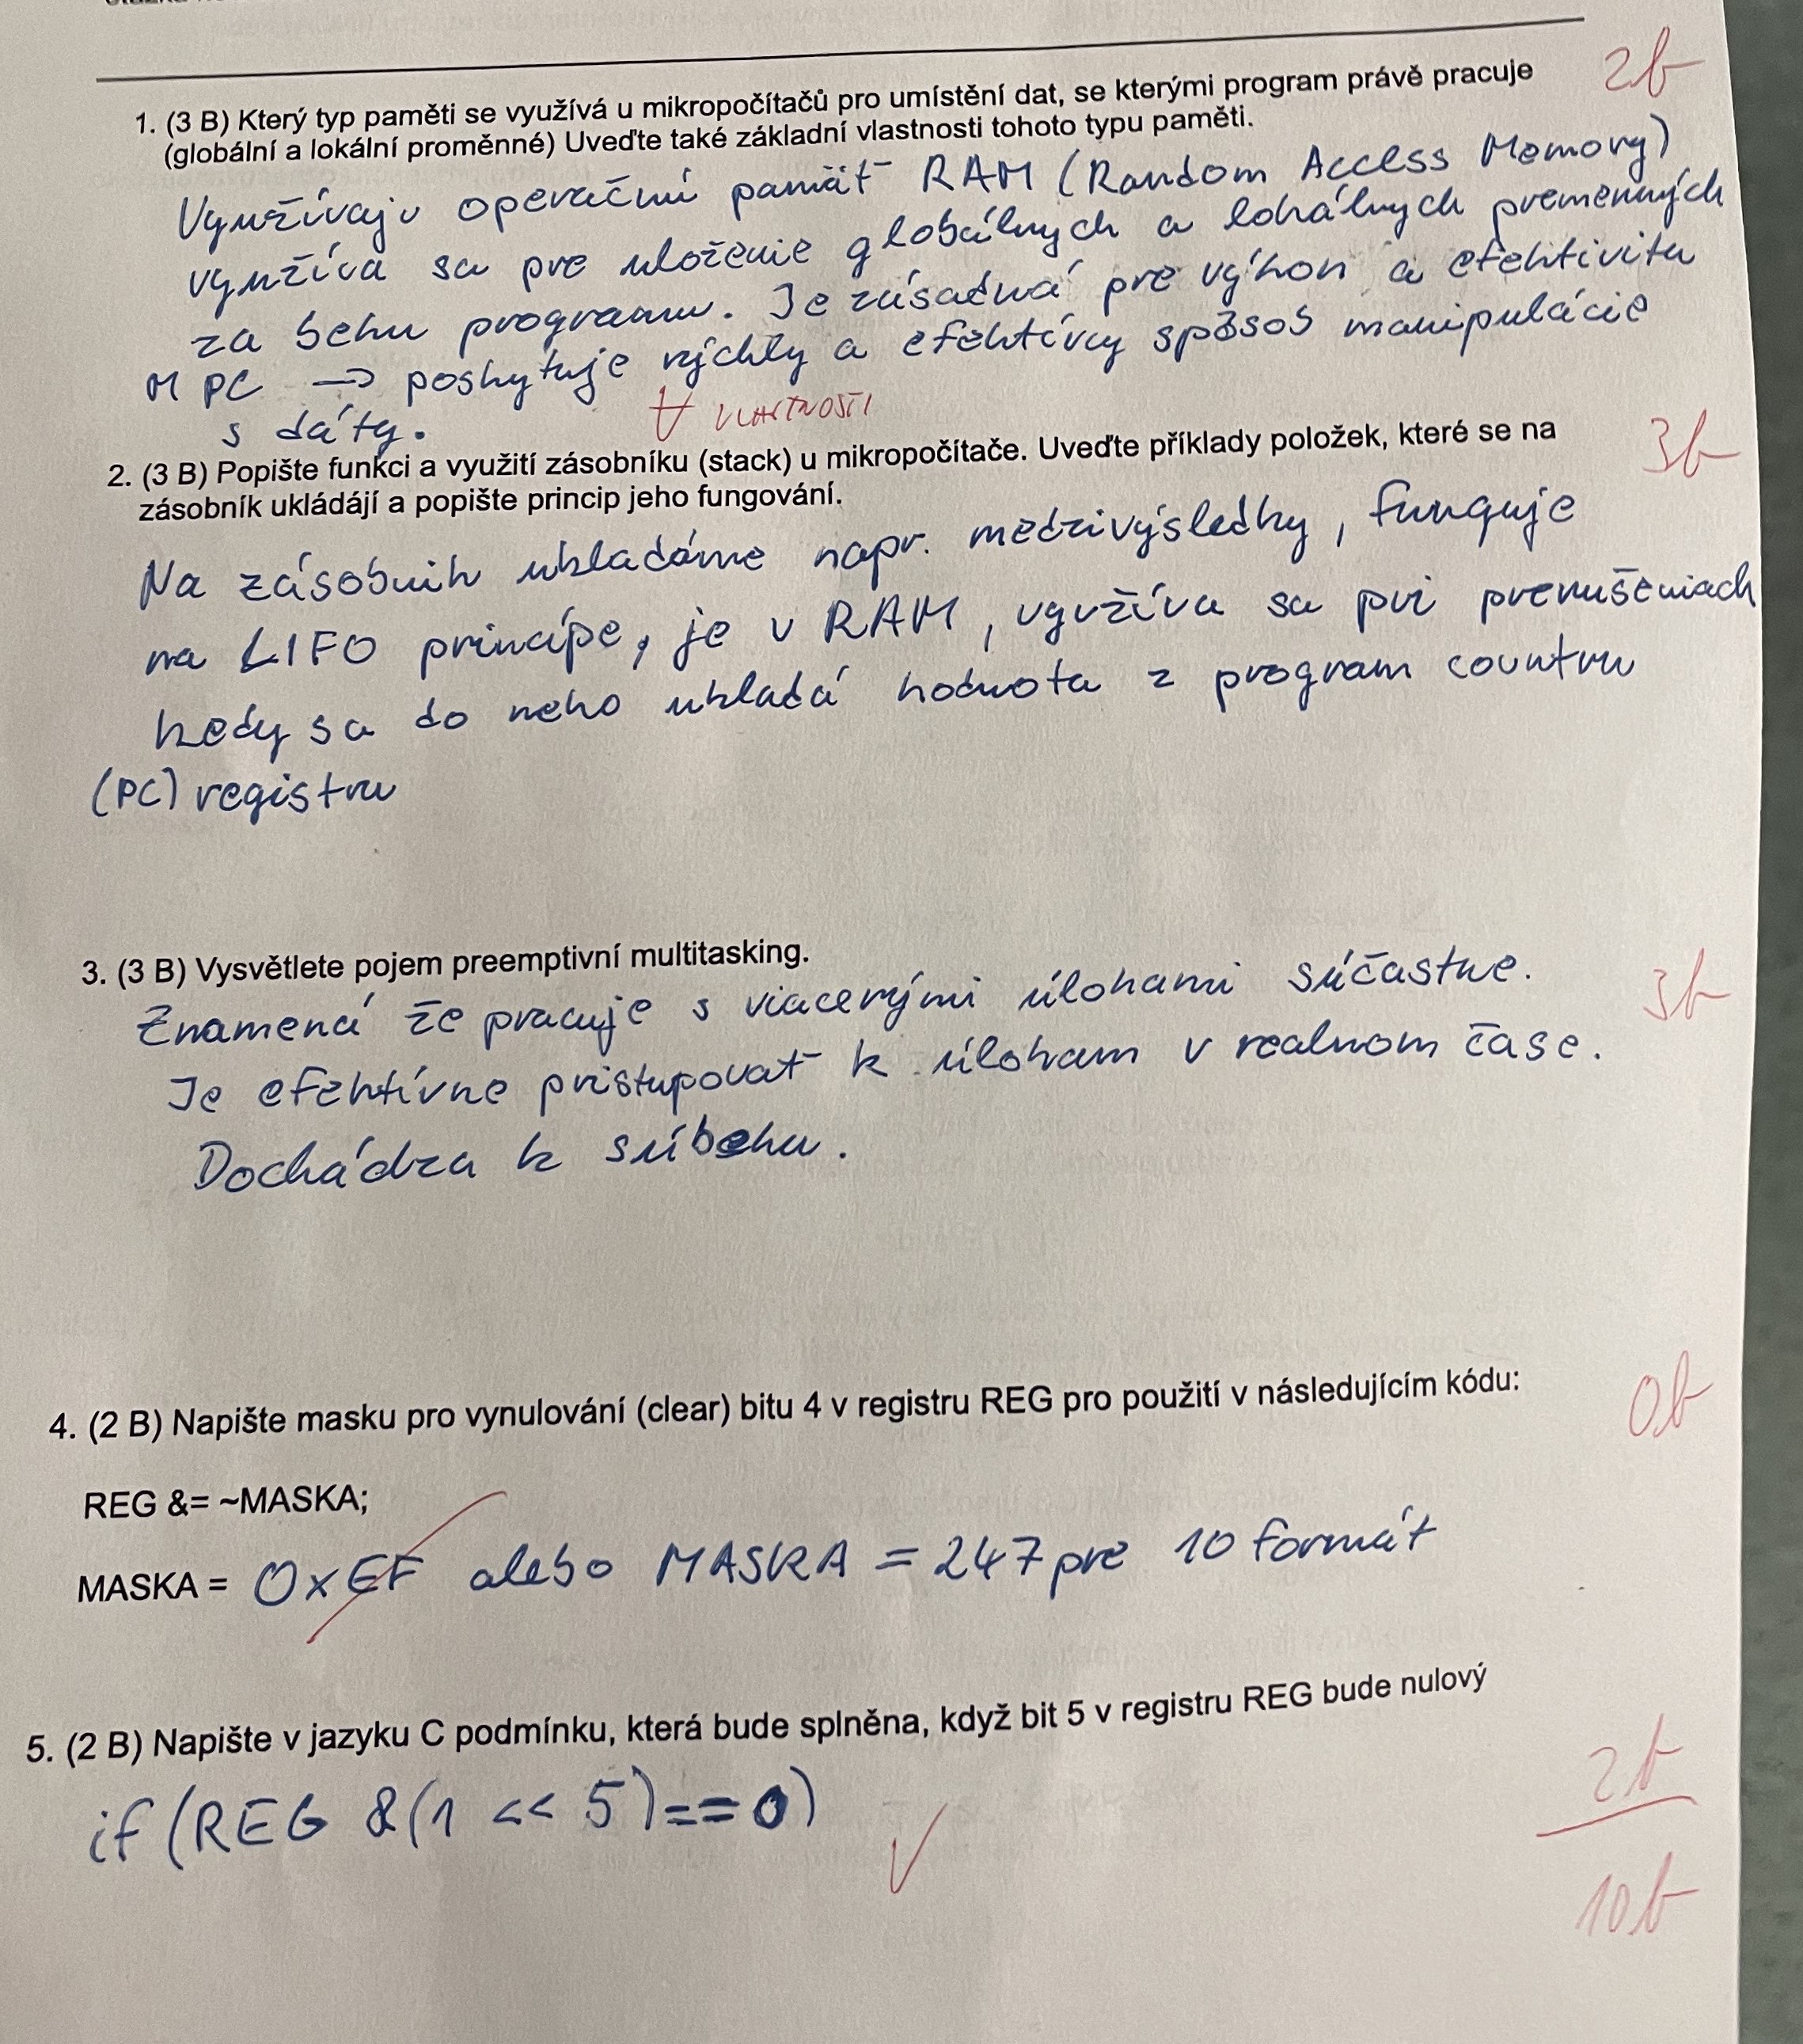 2b
1. (3 B) Který typ paměti se využívá u mikropočítačů pro umístění dat, se kterými program právě pracuje
(globální a lokální proměnné) Uveďte také základní vlastnosti tohoto typu paměti.
Využívajú operačnú pamäť RAM (Random Access Memory)
využíva sa pre uloženie globálnych a lokálnych premenných
za behu programu. Je zásadná pre výkon a efektivitu
MPC → poskytuje rýchly a efektívny spôsob manipulácie
s dáty.
VLASTNOSTI
3b
2. (3 B) Popište funkci a využití zásobníku (stack) u mikropočítače. Uveďte příklady položek, které se na
zásobník ukládájí a popište princip jeho fungování.
Na zásobnik ukladáme napr. medzivýsledky, funguje
na LIFO princípe, je v RAM, využíva sa pri prerušeniach
kedy sa do neho ukladá hodnota z program countru
(PC) registru
3. (3 B) Vysvětlete pojem preemptivní multitasking.
3b
Znamená že pracuje s viacerými úlohami súčastne.
Je efektívne pristupovať k úloham v realnom čase.
Dochádza k súbehu.
4. (2 B) Napište masku pro vynulování (clear) bitu 4 v registru REG pro použití v následujícím kódu:
0b
REG &= ~MASKA;
MASKA = 0xEF alebo MASKA = 247 pre 10 formát
5. (2 B) Napište v jazyku C podmínku, která bude splněna, když bit 5 v registru REG bude nulový
2b
if (REG &(1 << 5)==0)
10b